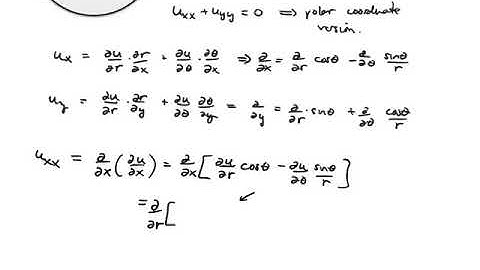 u_xx + u_yy = 0 ⟹ polar coordinate
version.
u_x = ∂u/∂r · ∂r/∂x + ∂u/∂θ · ∂θ/∂x ⟹ ∂/∂x = ∂/∂r cosθ - ∂/∂θ sinθ/r
u_y = ∂u/∂r · ∂r/∂y + ∂u/∂θ ∂θ/∂y = ∂/∂y = ∂/∂r · sinθ + ∂/∂θ cosθ/r
u_xx = ∂/∂x (∂u/∂x) = ∂/∂x [ ∂u/∂r cosθ - ∂u/∂θ sinθ/r ]
= ∂/∂r [